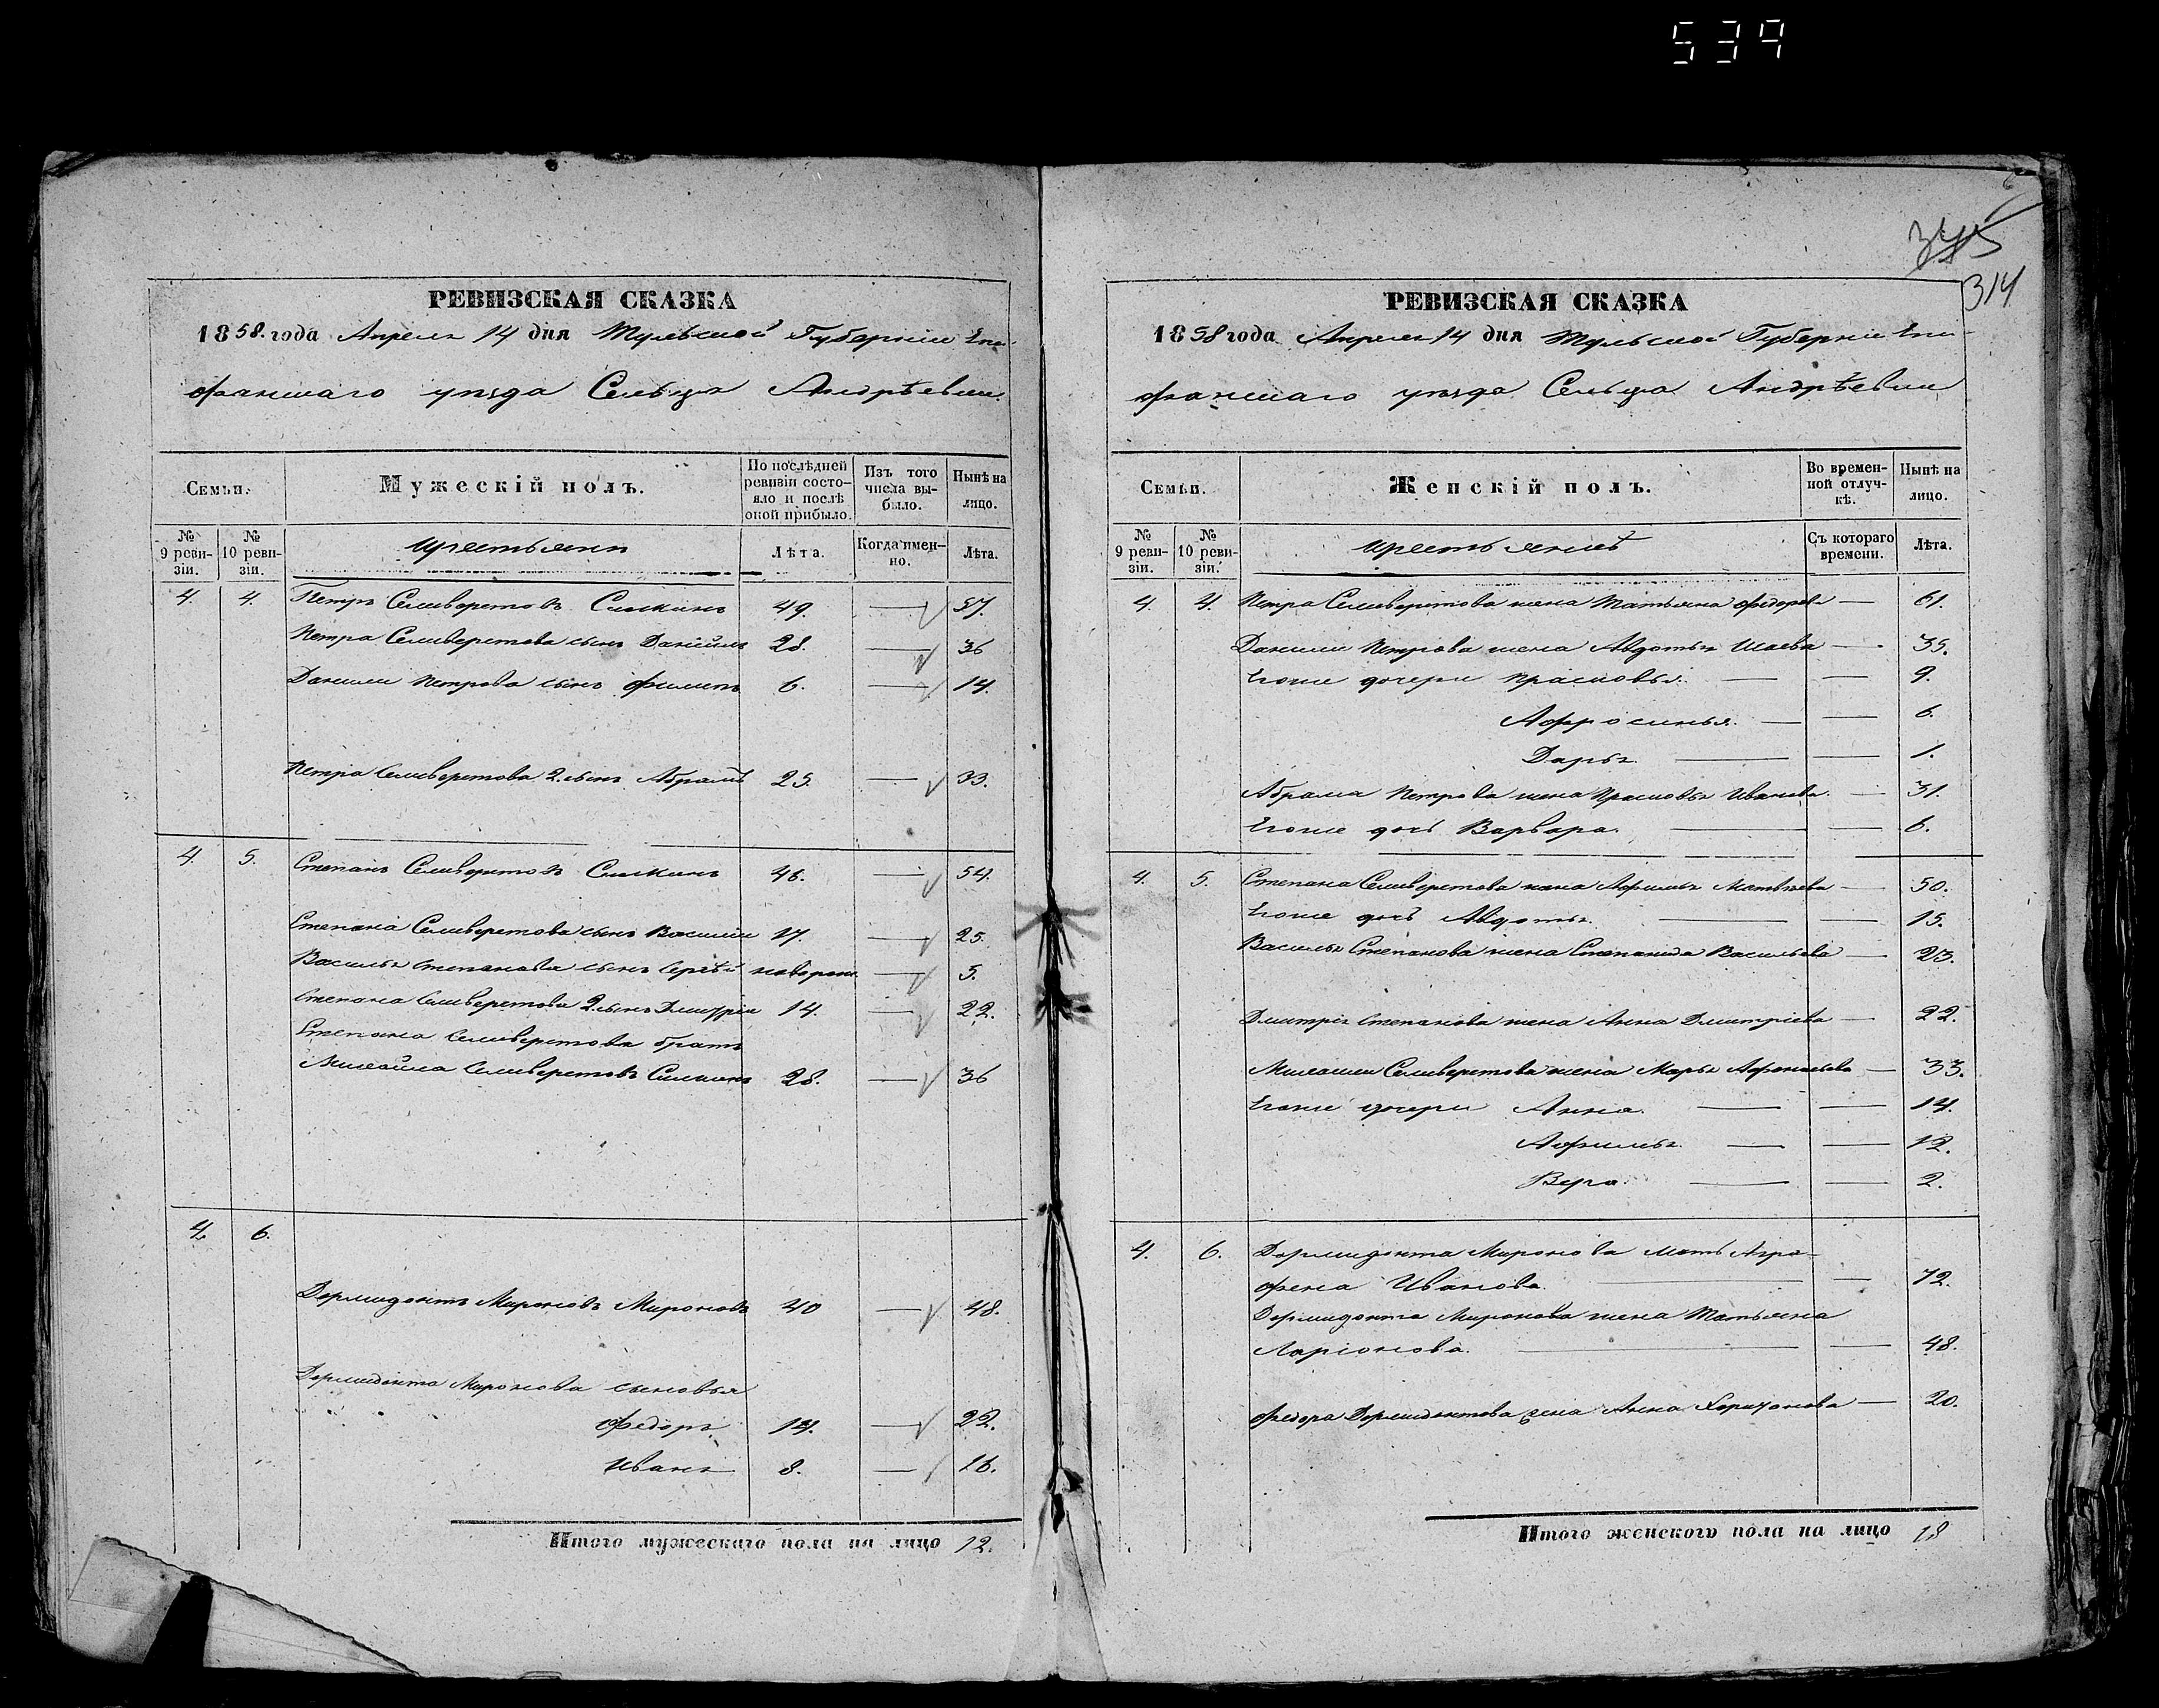 539
345
314
РЕВИЗСКАЯ СКАЗКА
1858 года Апреля 14 дня Тульской Губернiи Епи-
фанскаго уѣзда Сельца Андрѣевки.
Семьи.
Мужескiй полъ.
По послѣдней ревизiи состо-яло и послѣ оной прибыло.
Изъ того числа вы-было.
Нынѣ на лицо.
№ 9 реви-зiи.
№ 10 реви-зiи.
Крестьяне
Лѣта.
Когда имен-но.
Лѣта.
4. 4. Петръ Селиверстовъ 49. — 57.
Петра Селиверстова сынъ Данiилъ 28. — 36
Данилы Петрова сынъ Филипъ 6. — 14.
Петра Селиверстова 2. сынъ Абрамъ 25. — 33.
4. 5. Степанъ Селиверстовъ 46. — 54.
Степана Селиверстова сынъ Василiй 17. — 25.
Василья Степанова сынъ Сергѣй новорож. — 5.
Степана Селиверстова 2. сынъ Дмитрiй 14. — 22.
Степана Селиверстова братъ
Михайла Селиверстовъ 28. — 36
4 6.
Дормидонтъ Мироновъ Мироновъ 40 — 48.
Дормидонта Миронова сыновья
Федоръ 14. — 22.
Иванъ 8. — 16.
Итого мужескаго пола на лицо 12.
РЕВИЗСКАЯ СКАЗКА
1858 года Апреля 14 дня Тульской Губернiи Епи-
фанскаго уѣзда Сельца Андрѣевки
Семьи.
Женскiй полъ.
Во времен-ной отлуч-кѣ.
Нынѣ на лицо.
№ 9 реви-зiи.
№ 10 реви-зiи.
Крестьянкѣ
Съ котораго времени.
Лѣта.
4. 4. Петра Селиверстова жена Татьяна Федорова — 61.
Данилы Петрова жена Авдотья — 35.
Егоже дочери Прасковья. — — 9.
Афросинья. — — 6.
Дарья — — 1.
Абрама Петрова жена Прасковья Иванова. — 31.
Егоже дочь Варвара. — — 6.
4. 5. Степана Селиверстова жена Афимья Матвѣева — 50.
Егоже дочь Авдотья. — — 15.
Василья Степанова жена Степанида Васильева — 23.
Дмитрiя Степанова жена Анна Дмитрiева — 22.
Михайлы Селиверстова жена Марья Афонасьева — 33.
Егоже дочери Анна. — — 14.
Афимья. — — 12.
Вера. — — 2.
4. 6. Дормидонта Миронова мать Агра-
фена Иванова. — — 72.
Дормидонта Миронова жена Татьяна
Ларiонова. — — 48.
Федора Дормидонтова жена Анна Харитонова — 20.
Итого женскаго пола на лицо 18